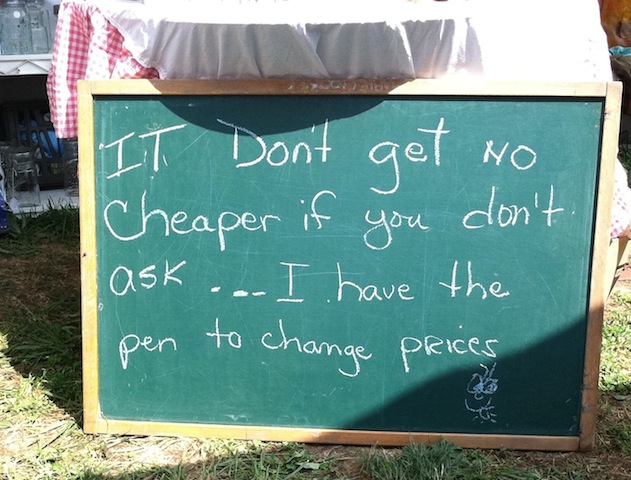 IT Don't get NO
Cheaper if you don't
ask .--- I have the
pen to change prices